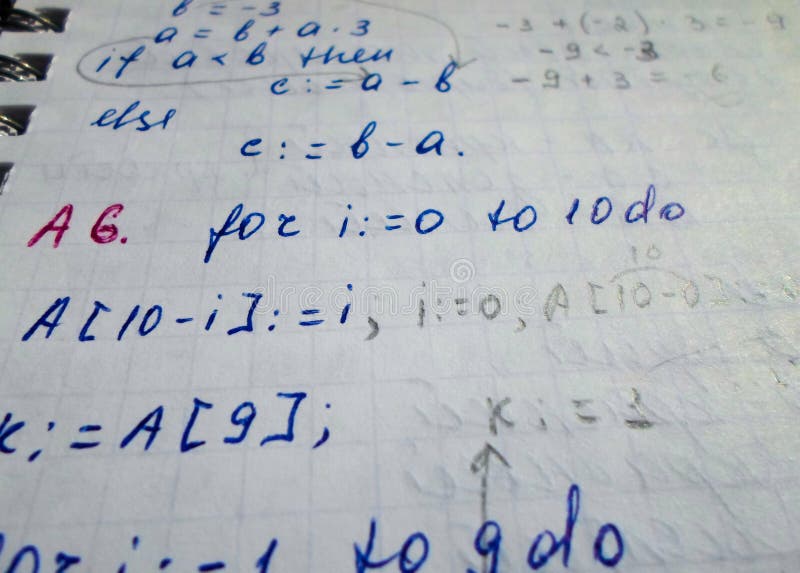 b = -3
a = b + a · 3   -3 + (-2) · 3 = -9
if a < b then   -9 < -3
c := a - b   -9 + 3 = -6
else
c := b - a.
A6. for i:=0 to 10 do
10
A[10-i]:=i; i:=0, A[10-0]:=
k:=A[9]; k:=1
for i:=1 to 9 do
dreamstime